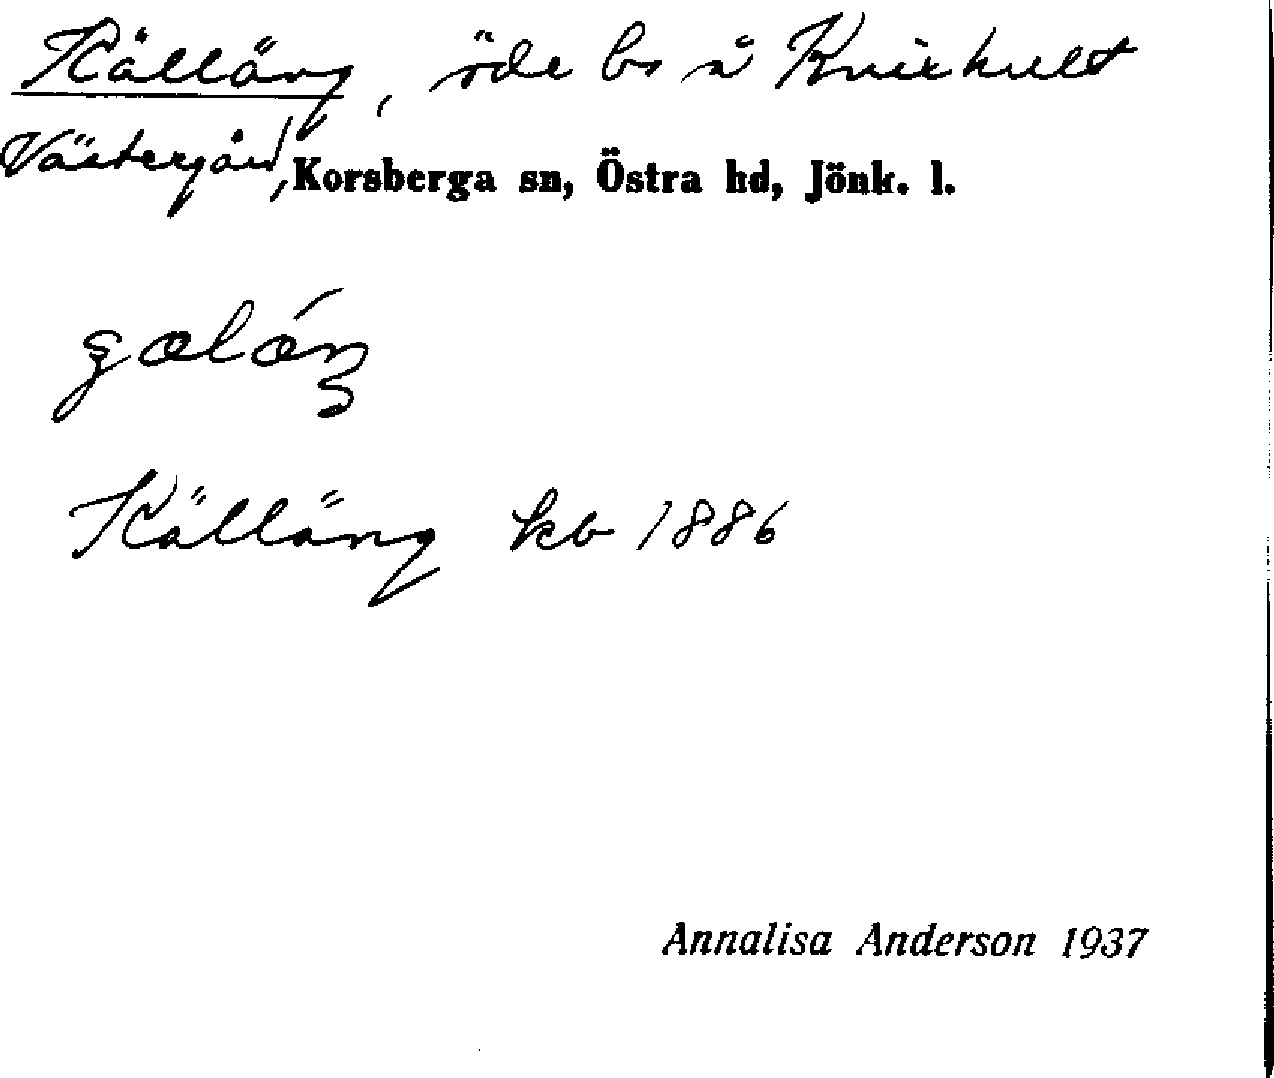 Källäng, öde bs å Knixhult
Västergård, Korsberga sn, Östra hd, Jönk. l.
Källäng kb 1886
Annalisa Anderson 1937